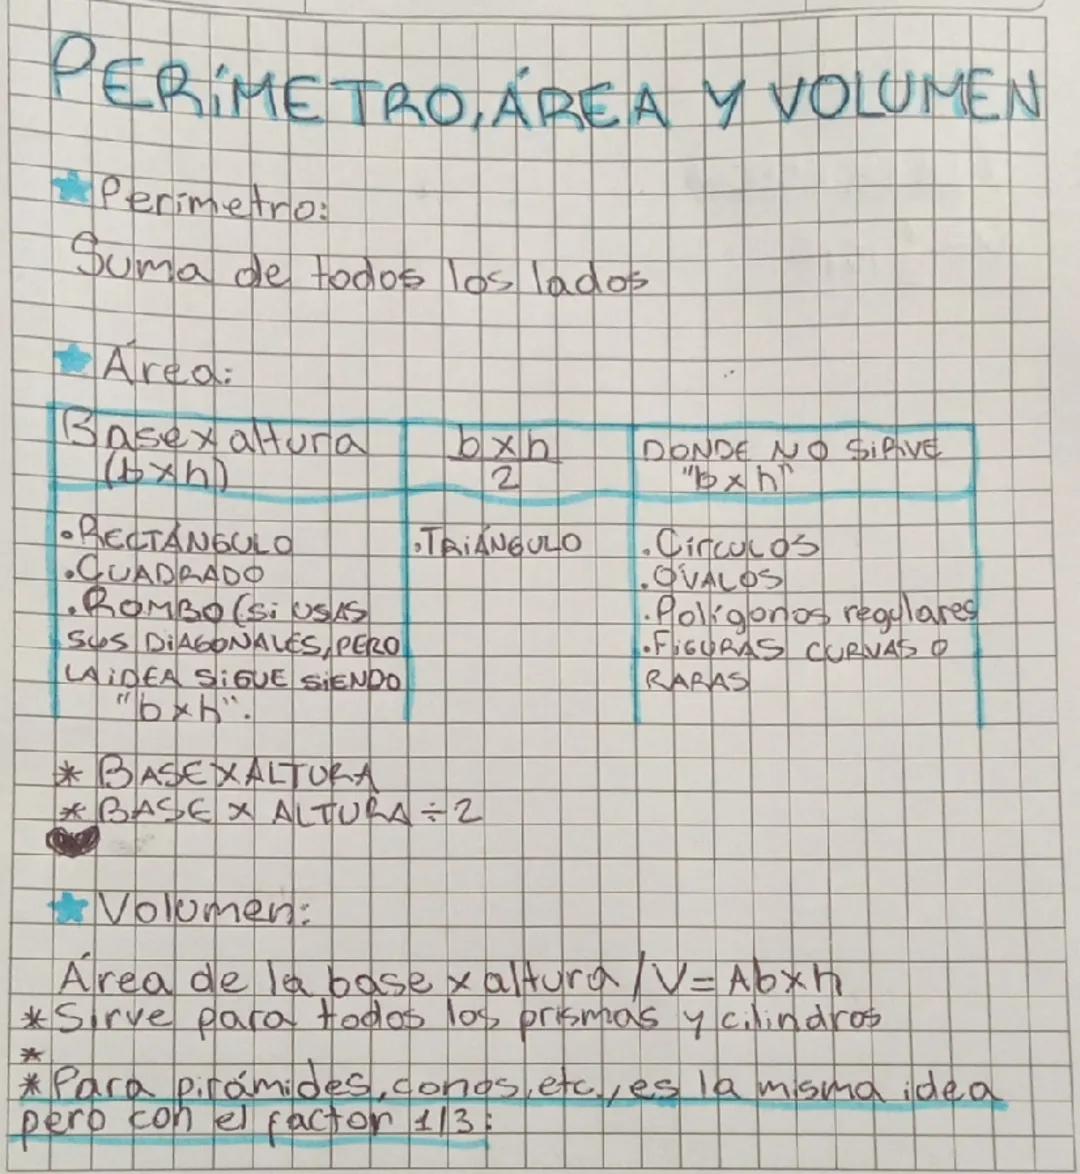 PERÍMETRO, ÁREA Y VOLUMEN
Perímetro:
Suma de todos los lados
Área:
Base x altura
(b x h)
b x h
2
DONDE NO SIRVE
"b x h"
• RECTÁNGULO
• CUADRADO
• ROMBO (Si USAS
SUS DIAGONALES, PERO
LA iDEA SiGUE SiENDO
"b x h".
• TRIÁNGULO
• CÍrcULOS
• OVALOS
• Polígonos regulares
• FIGURAS CURVAS O
RARAS
* BASE X ALTURA
* BASE X ALTURA ÷ 2
Volumen:
Área de la base x altura / V = Ab x h
* Sirve para todos los prismas y cilindros
*
* Para pirámides, conos, etc., es la misma idea
pero con el factor 1/3: